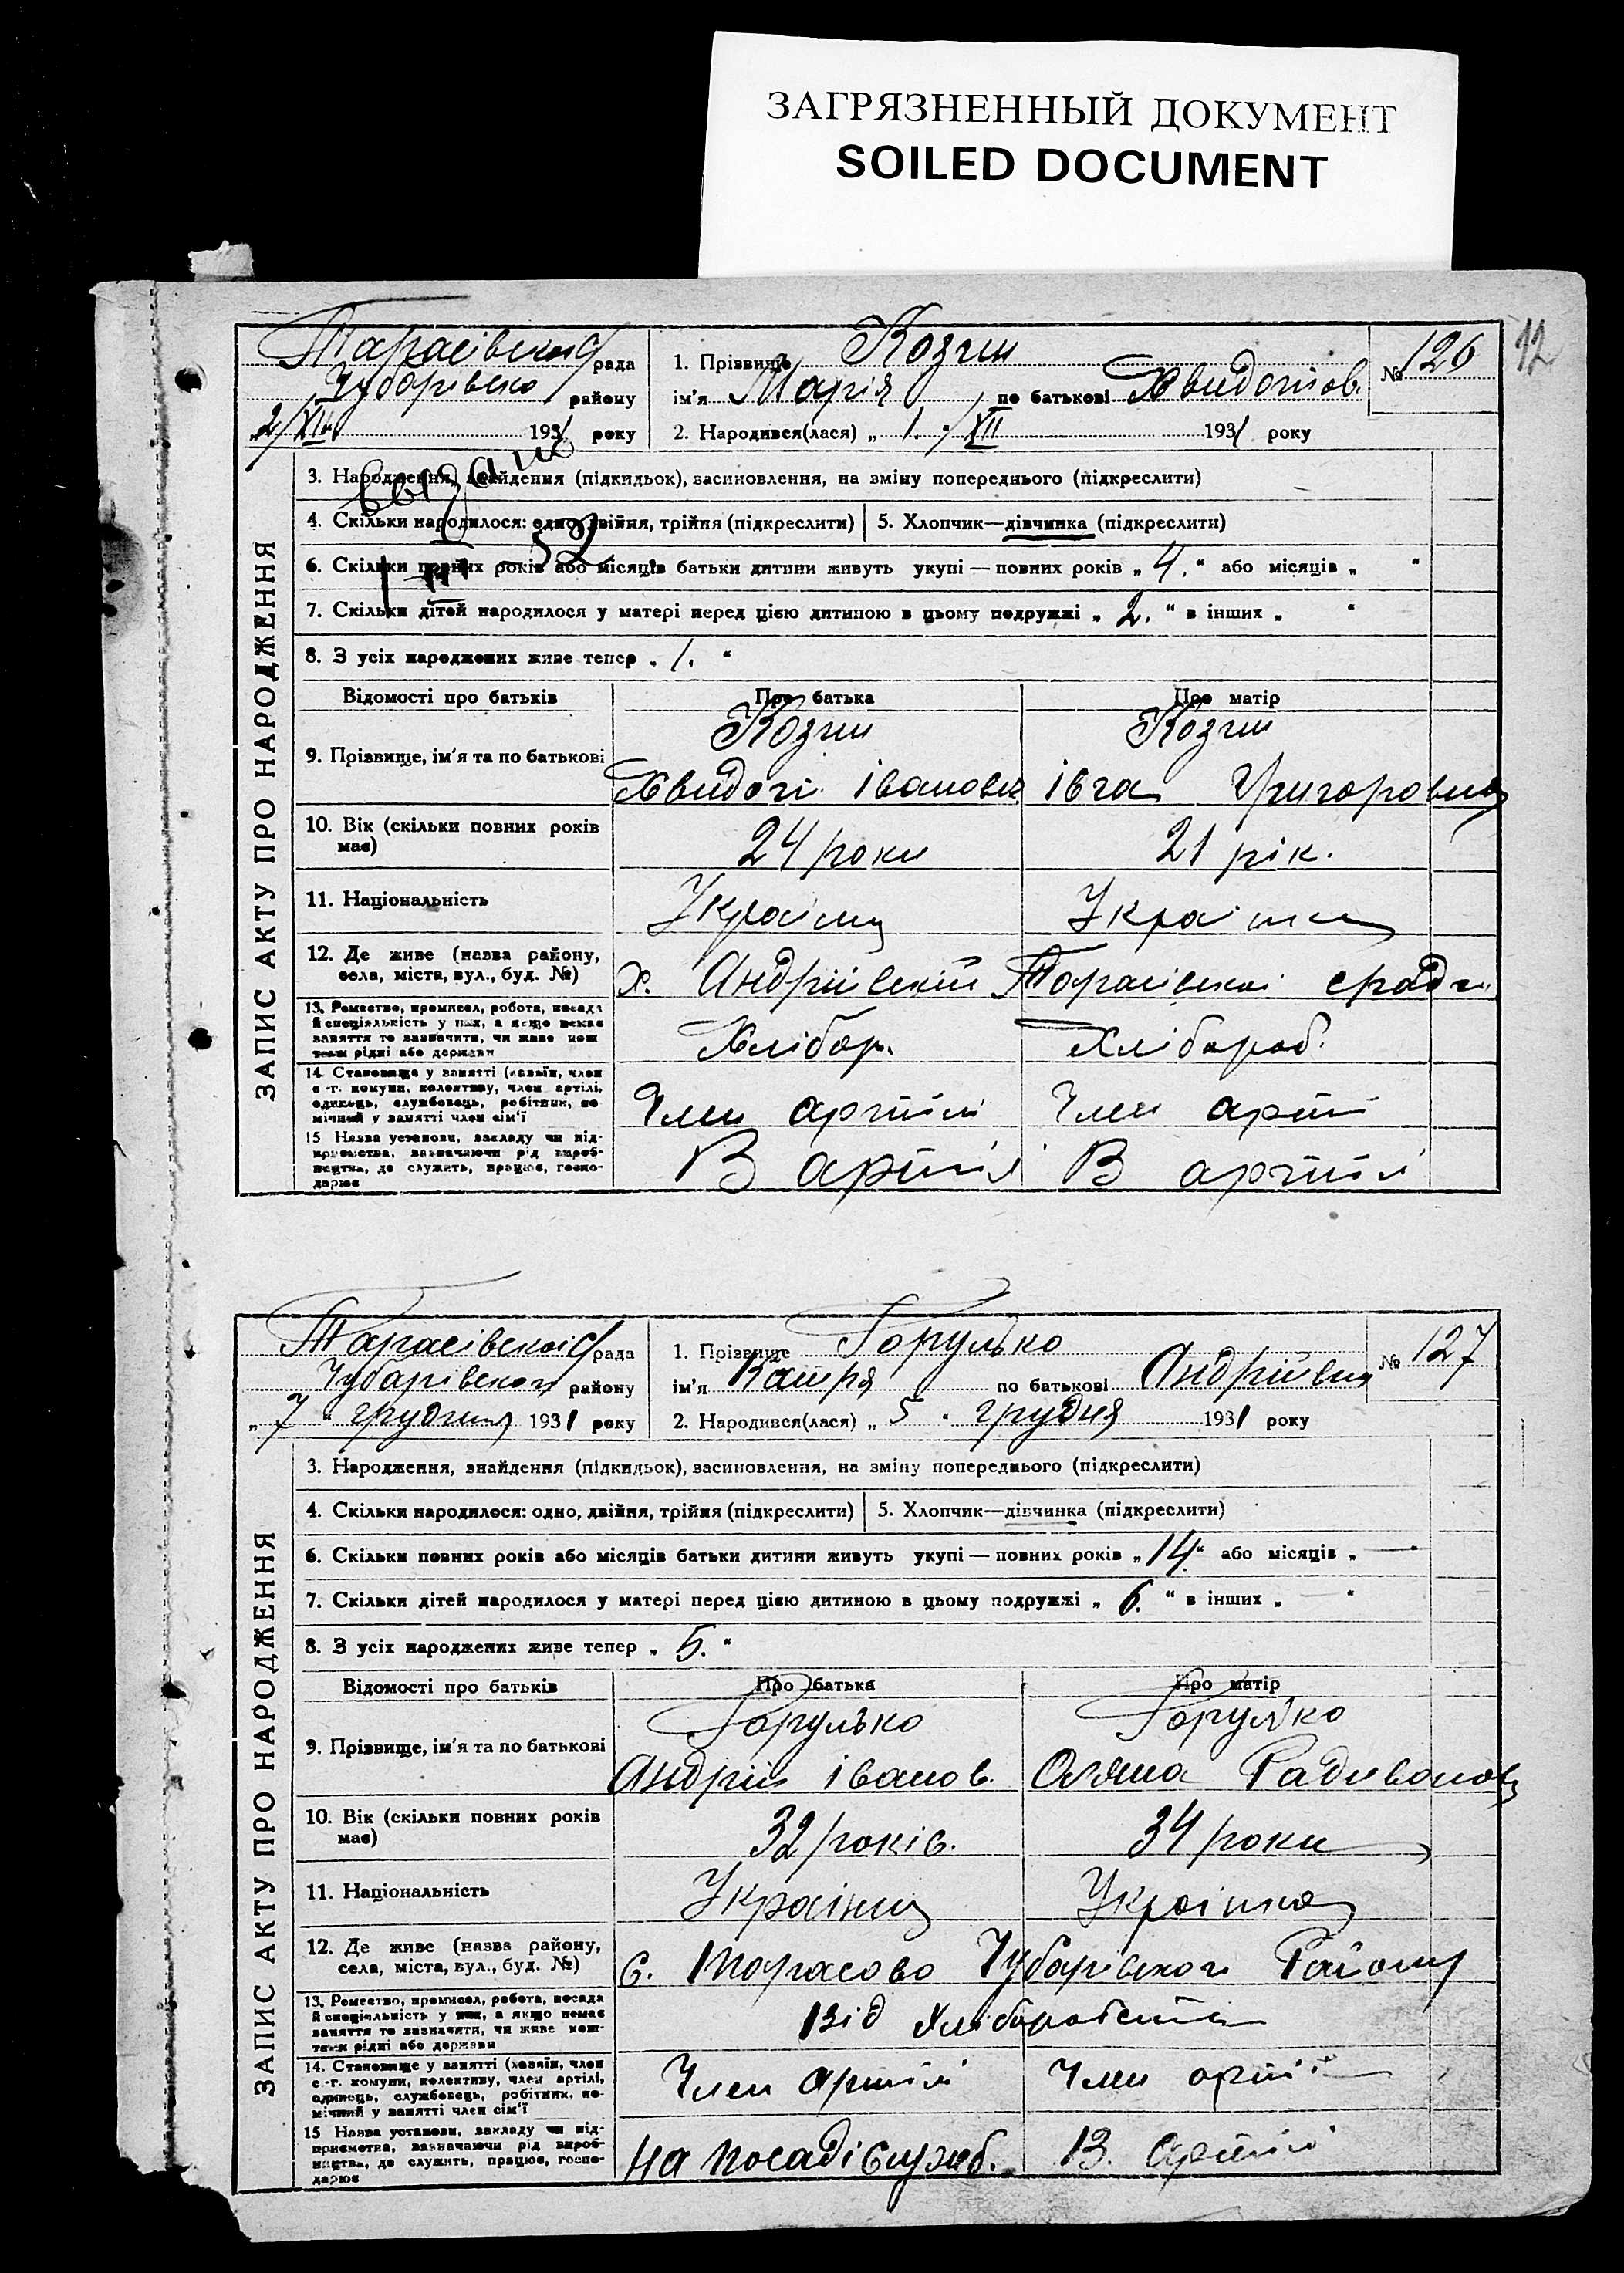 ЗАГРЯЗНЕННЫЙ ДОКУМЕНТ
SOILED DOCUMENT
12
ЗАПИС АКТУ ПРО НАРОДЖЕННЯ
Тарасівської с/рада
Чубарівсько району
2/XII 1931 року
1. Прізвище
ім'я Марія по батькові
2. Народився(лася) „ 1. /XII 1931 року
№ 126
выдано
52
3. Народження, знайдення (підкидьок), засиновлення, на зміну попереднього (підкреслити)
4. Скільки народилося: одно, двійня, трійня (підкреслити) 5. Хлопчик—дівчинка (підкреслити)
6. Скільки повних років або місяців батьки дитини живуть укупі — повних років „ 4. “ або місяців „ “
7. Скільки дітей народилося у матері перед цією дитиною в цьому подружжі „ 2. “ в інших „ “
8. З усіх народжених живе тепер „ 1. “
Відомості про батьків Про батька Про матір
9. Прізвище, ім'я та по батькові
Іванович Івга Григоровна
10. Вік (скільки повних років має) 24 роки 21 рік.
11. Національність Українц Українка
12. Де живе (назва району, села, міста, вул., буд. №) х. Андріївській Тарасівської сради
13. Ремество, промисел, робота, посада й спеціяльність у них, а якщо немає заняття то зазначити, чи живе коштами рідні або держави Хлібор. Хлібороб.
14. Становище у занятті (хазяїн, член с.-г. комуни, колективу, член артілі, одинець, службовець, робітник, помічний у занятті член сім'ї Член артілі Член артілі
15 Назва установи, закладу чи підприємства, зазначаючи рід виробництва, де служить, працює, господарює В артілі В артілі
ЗАПИС АКТУ ПРО НАРОДЖЕННЯ
Тарасівської с/рада
Чубарівського району
„ 7 “ грудня 1931 року
1. Прізвище Горулько
ім'я Катря по батькові Андріївна
2. Народився(лася) „ 5 “ грудня 1931 року
№ 127
3. Народження, знайдення (підкидьок), засиновлення, на зміну попереднього (підкреслити)
4. Скільки народилося: одно, двійня, трійня (підкреслити) 5. Хлопчик—дівчинка (підкреслити)
6. Скільки повних років або місяців батьки дитини живуть укупі — повних років „ 14 “ або місяців „ — “
7. Скільки дітей народилося у матері перед цією дитиною в цьому подружжі „ 6. “ в інших „ — “
8. З усіх народжених живе тепер „ 5. “
Відомості про батьків Про батька Про матір
9. Прізвище, ім'я та по батькові Горулько Горулько
Андрій Іванов. Оляна Радивонов
10. Вік (скільки повних років має) 32 років. 34 роки
11. Національність Українц Українка
12. Де живе (назва району, села, міста, вул., буд. №) с. Тарасово Чубарівского Району
13. Ремество, промисел, робота, посада й спеціяльність у них, а якщо немає заняття то зазначити, чи живе коштами рідні або держави Від Хліборобства
14. Становище у занятті (хазяїн, член с.-г. комуни, колективу, член артілі, одинець, службовець, робітник, помічний у занятті член сім'ї Член артілі Член артілі
15 Назва установи, закладу чи підприємства, зазначаючи рід виробництва, де служить, працює, господарює на посаді служб. В. артілі